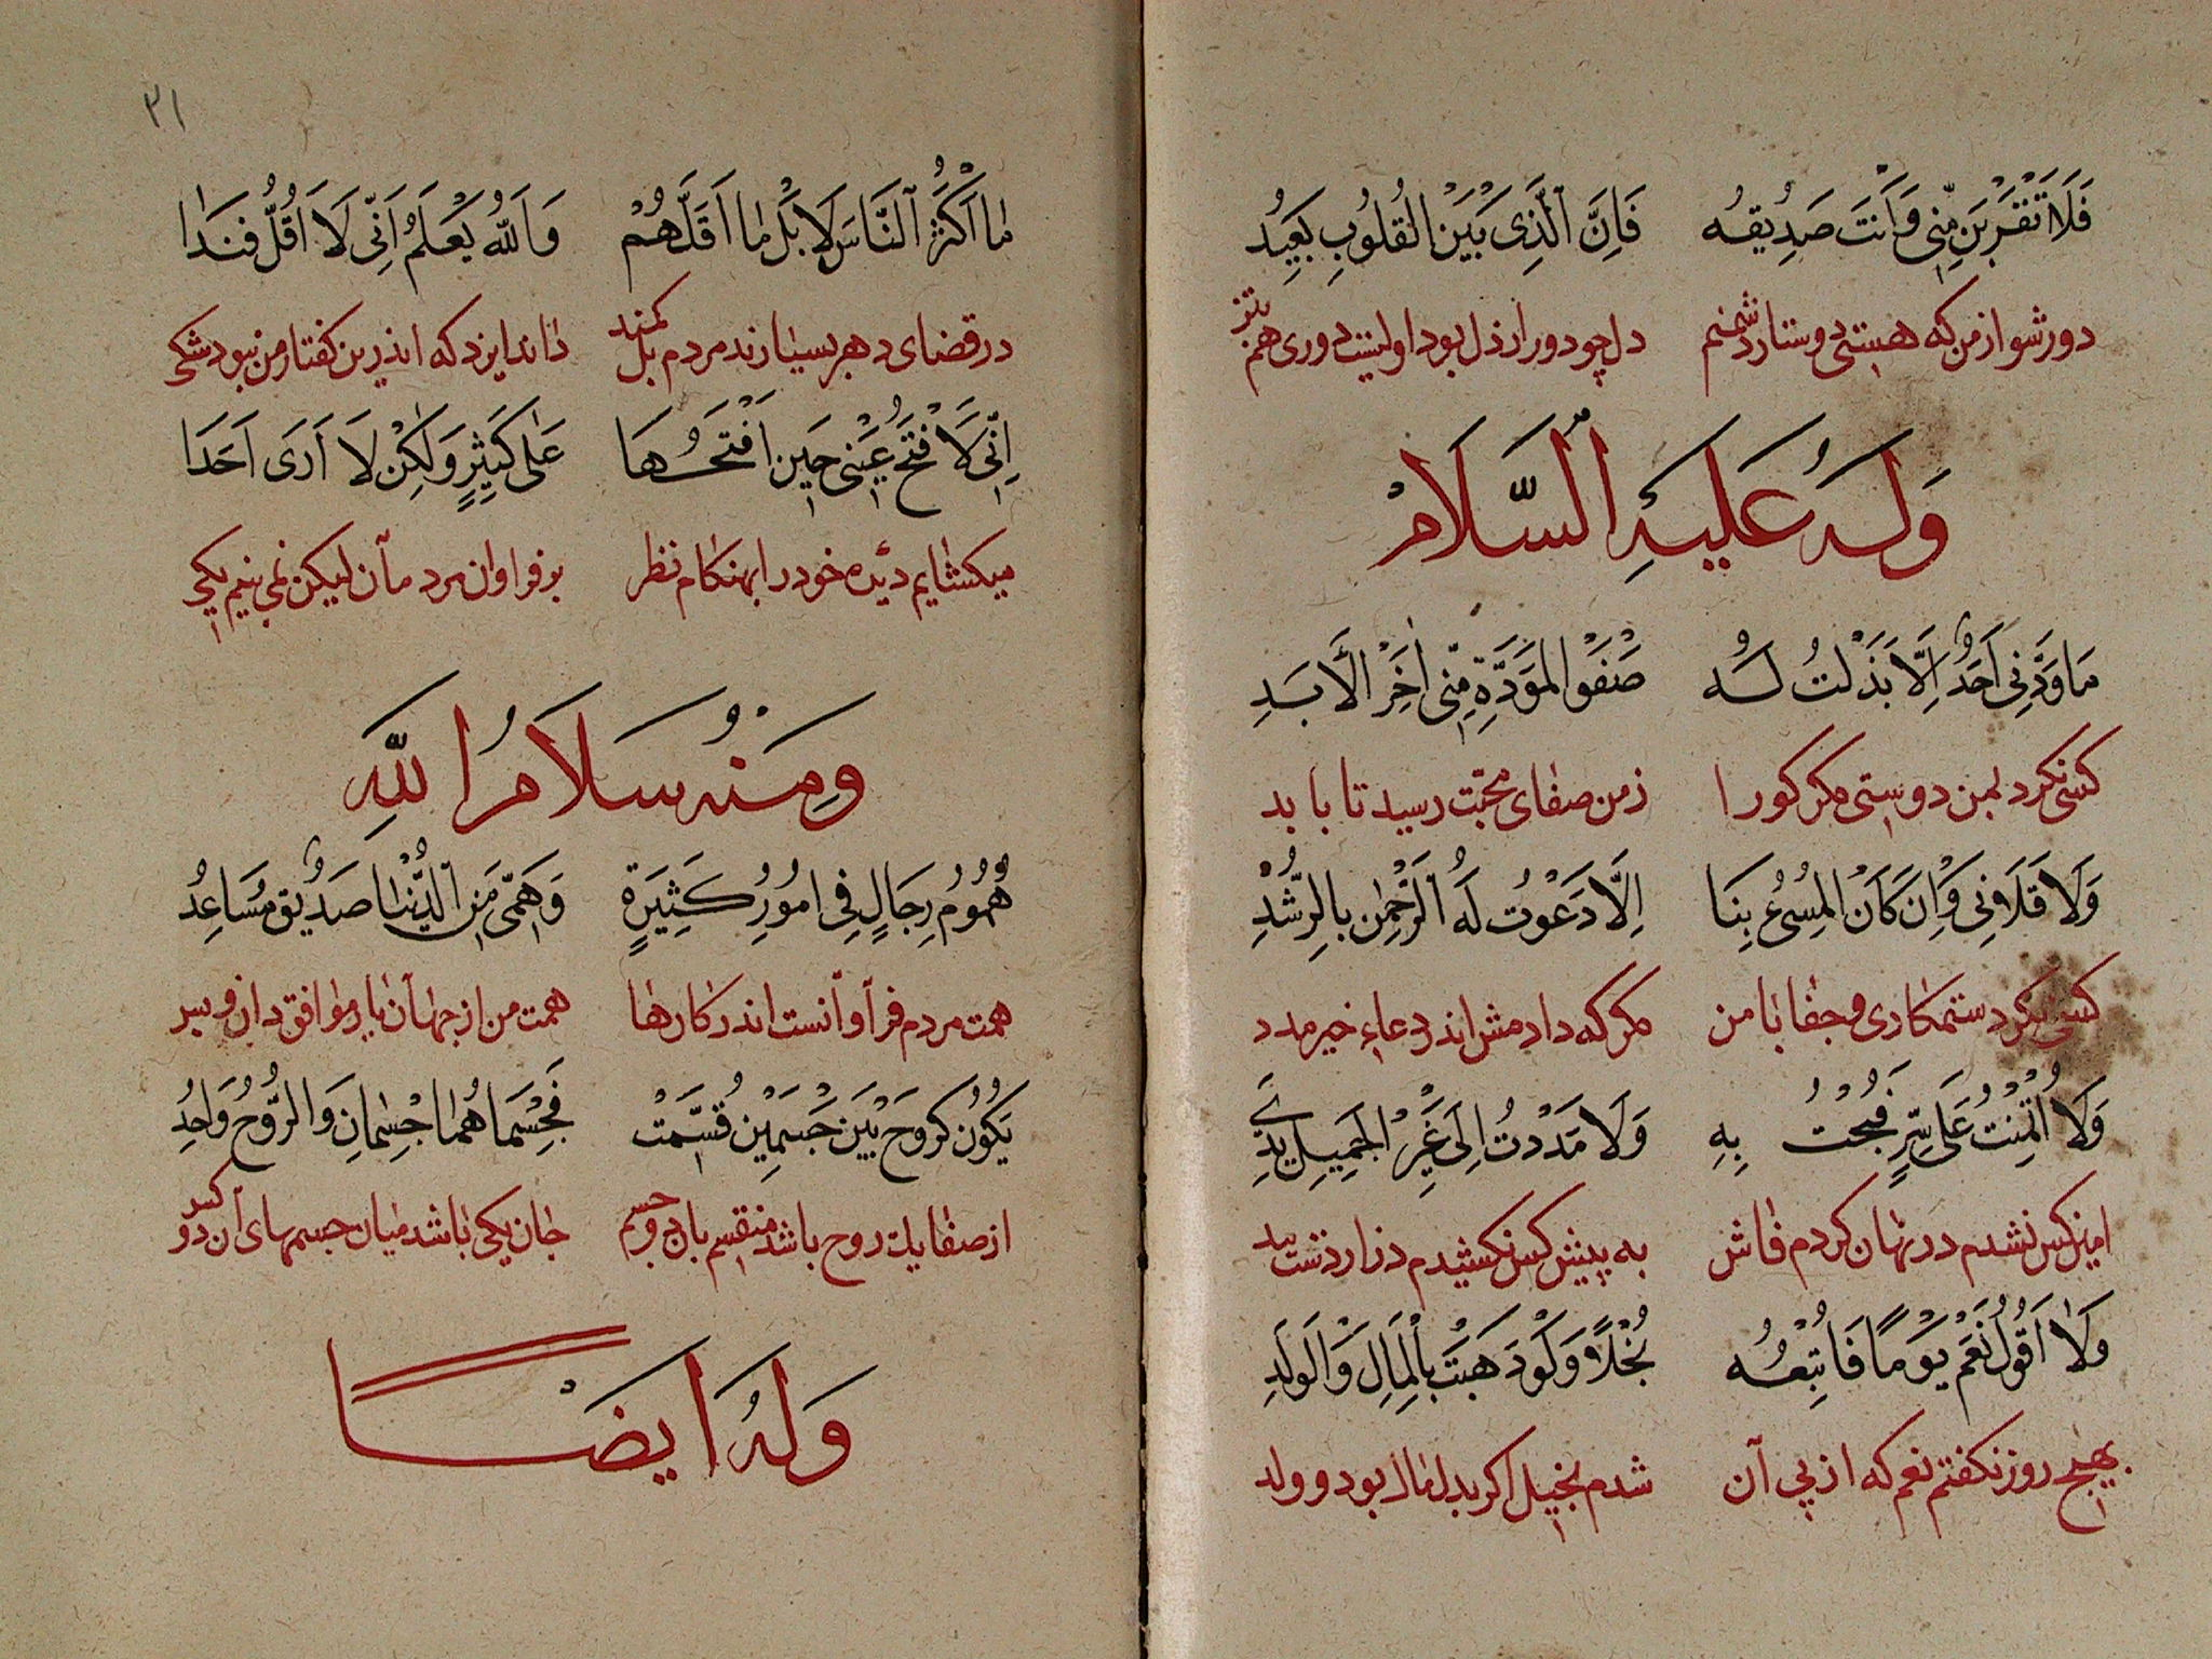 فَلَا تَقْرَبَنْ مِنِّي وَاَنْتَ صَدِيقُه فَاِنَّ الَّذِى بَيْنَ الْقُلُوبِ بَعِيدُ
دور شو از من که هستی دوستار دشمنم دل چو دور از دل بود اولیست دوری هم
وَلَهُ عَلَيْهِ السَّلَامْ
مَا وَدَّنِي اَحَدٌ اِلَّا بَذَلْتُ لَهُ صَفْوَ الْمَوَدَّةِ مِنِّي اٰخِرَ الْاَبَدِ
کسی نکرد بمن دوستی مکر کورا ز من صفای محبّت رسید تا بابد
وَلَا قَلَانِي وَاِنْ كَانَ الْمُسِئُ بِنَا اِلَّا دَعَوْتُ لَهُ الرَّحْمٰنَ بِالرُّشْدِ
کسی نکرد ستمکاری و جفا با من مکر که دادمش اندر دعاء خیر مدد
وَلَا اُتُمِنْتُ عَلَى سِرٍّ فَبُحْتُ بِهِ وَلَا مَدَدْتُ اِلَى غَيْرِ الْجَمِيلِ يَدِي
امین کس نشدم در نهان کردم فاش به پیش کس نکشیدم دراز دست
وَلَا اَقُولُ نَعَمْ يَوْمًا فَاَتْبَعُهُ بُخْلًا وَلَوْ ذَهَبَتْ بِالْمَالِ وَالْوَلَدِ
بهیچ روز نکفتم نعم که از پی آن شدم بخیل اکر بدل مال بود و ولد
٣١
مَا اَكْثَرُ النَّاسَ لَا بَلْ مَا اَقَلَّهُمْ وَاَللّٰهُ يَعْلَمُ اَنِّي لَا اَقُلْ فَنَدَا
در قضای دهر بسیارند مردم بل کمند داند ایزد که اندرین کفتار من نبود شکی
اِنِّي لَاَفْتَحُ عَيْنِي حِينَ اَفْتَحُهَا عَلٰى كَثِيرٍ وَلٰكِنْ لَا اَرَى اَحَدَا
میکشایم دیده خود را بهنکام نظر بر فراوان مردمان لیکن نمی بینم یکی
وَمِنْهُ سَلَامُ اللّٰهِ
هُمُومُ رِجَالٍ فِي اُمُورٍ كَثِيرَةٍ وَهَمِّي مِنَ الدُّنْيَا صَدِيقٌ مُسَاعِدُ
همت مردم فراوانست اندر کارها همت من از جهان یار موافق دان و بس
يَكُونُ كَرُوحٍ بَيْنَ جِسْمَيْنِ قُسِّمَتْ فَجِسْمَاهُمَا جِسْمَانِ وَالرُّوحُ وَاحِدُ
از صفا یک روح باشد منقسم با دو جسم جان یکی باشد میان جسمهای آن دو کس
وَلَهُ اَيضًا